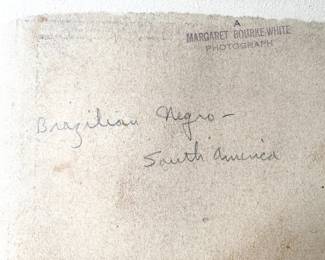 A
MARGARET BOURKE-WHITE
PHOTOGRAPH
Brazilian Negro -
South America